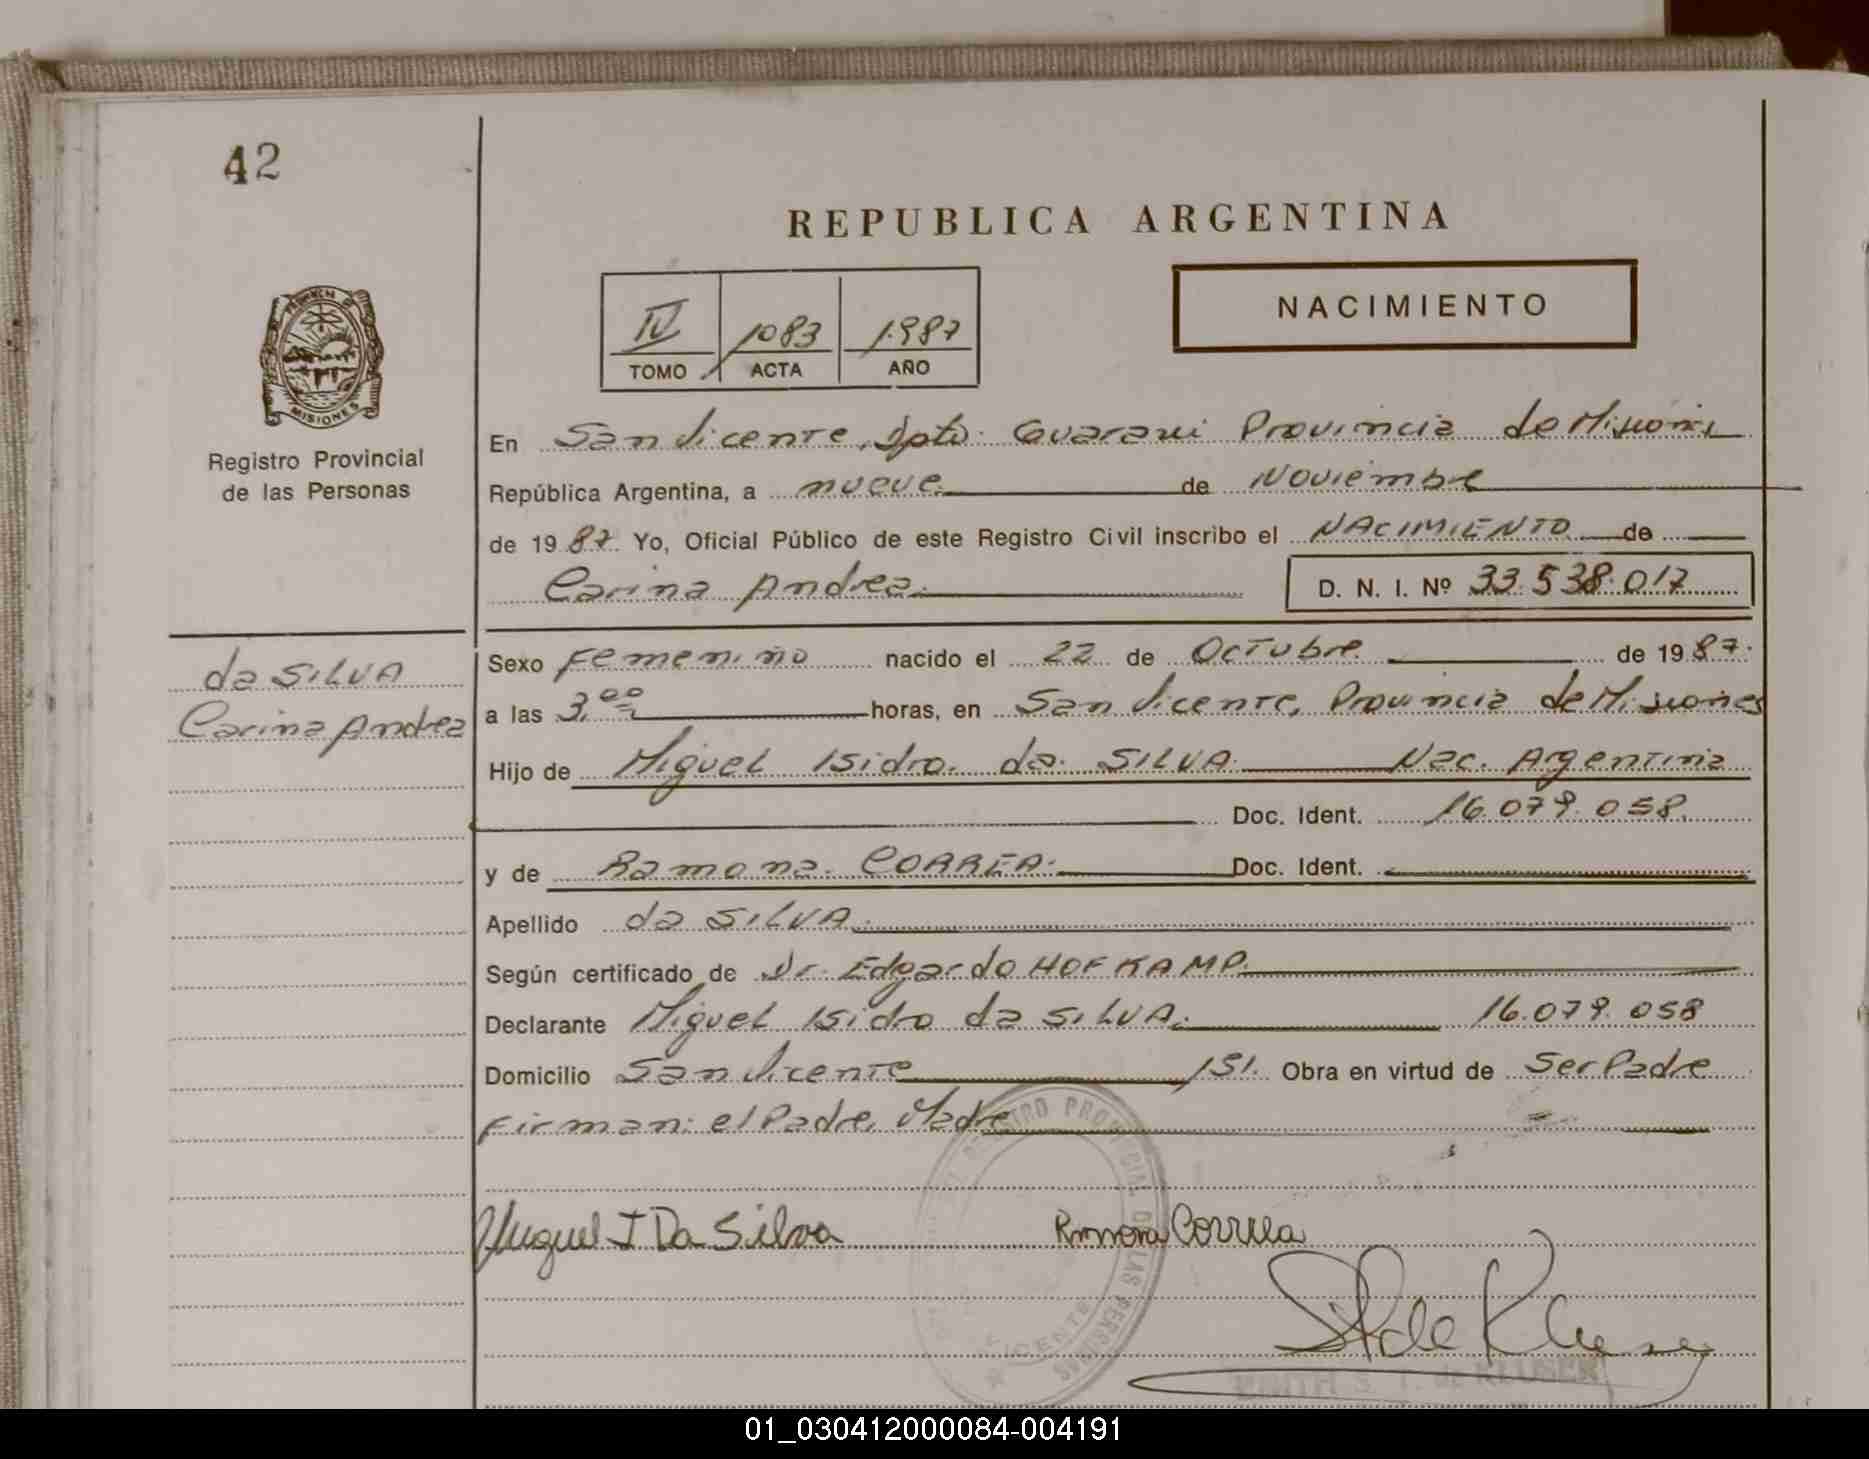 42
REPUBLICA ARGENTINA
PROVINCIA DE
MISIONES
Registro Provincial
de las Personas
IV 1083 1987
TOMO ACTA AÑO
NACIMIENTO
En San Vicente, Dpto. Guarani Provincia de Misiones
República Argentina, a nueve de Noviembre
de 1987. Yo, Oficial Público de este Registro Civil inscribo el NACIMIENTO de
Carina Andrea. D. N. I. Nº 33.538.017
da SILVA
Carina Andrea
Sexo Femenino nacido el 22 de Octubre de 1987.
a las 3.00 horas, en San Vicente, Provincia de Misiones
Hijo de Miguel Isidro da SILVA Nac. Argentina
Doc. Ident. 16.079.058.
y de Ramona CORREA. Doc. Ident.
Apellido da SILVA.
Según certificado de Dr. Edgardo HOFKAMP.
Declarante Miguel Isidro da SILVA. 16.079.058
Domicilio San Vicente /SI. Obra en virtud de Ser Padre
Firman: el Padre, Madre
REGISTRO PROVINCIAL DE LAS PERSONAS
VICENTE
Miguel I Da Silva Ramona Correa
EDITH S. T. de KLUSEN
01_030412000084-004191